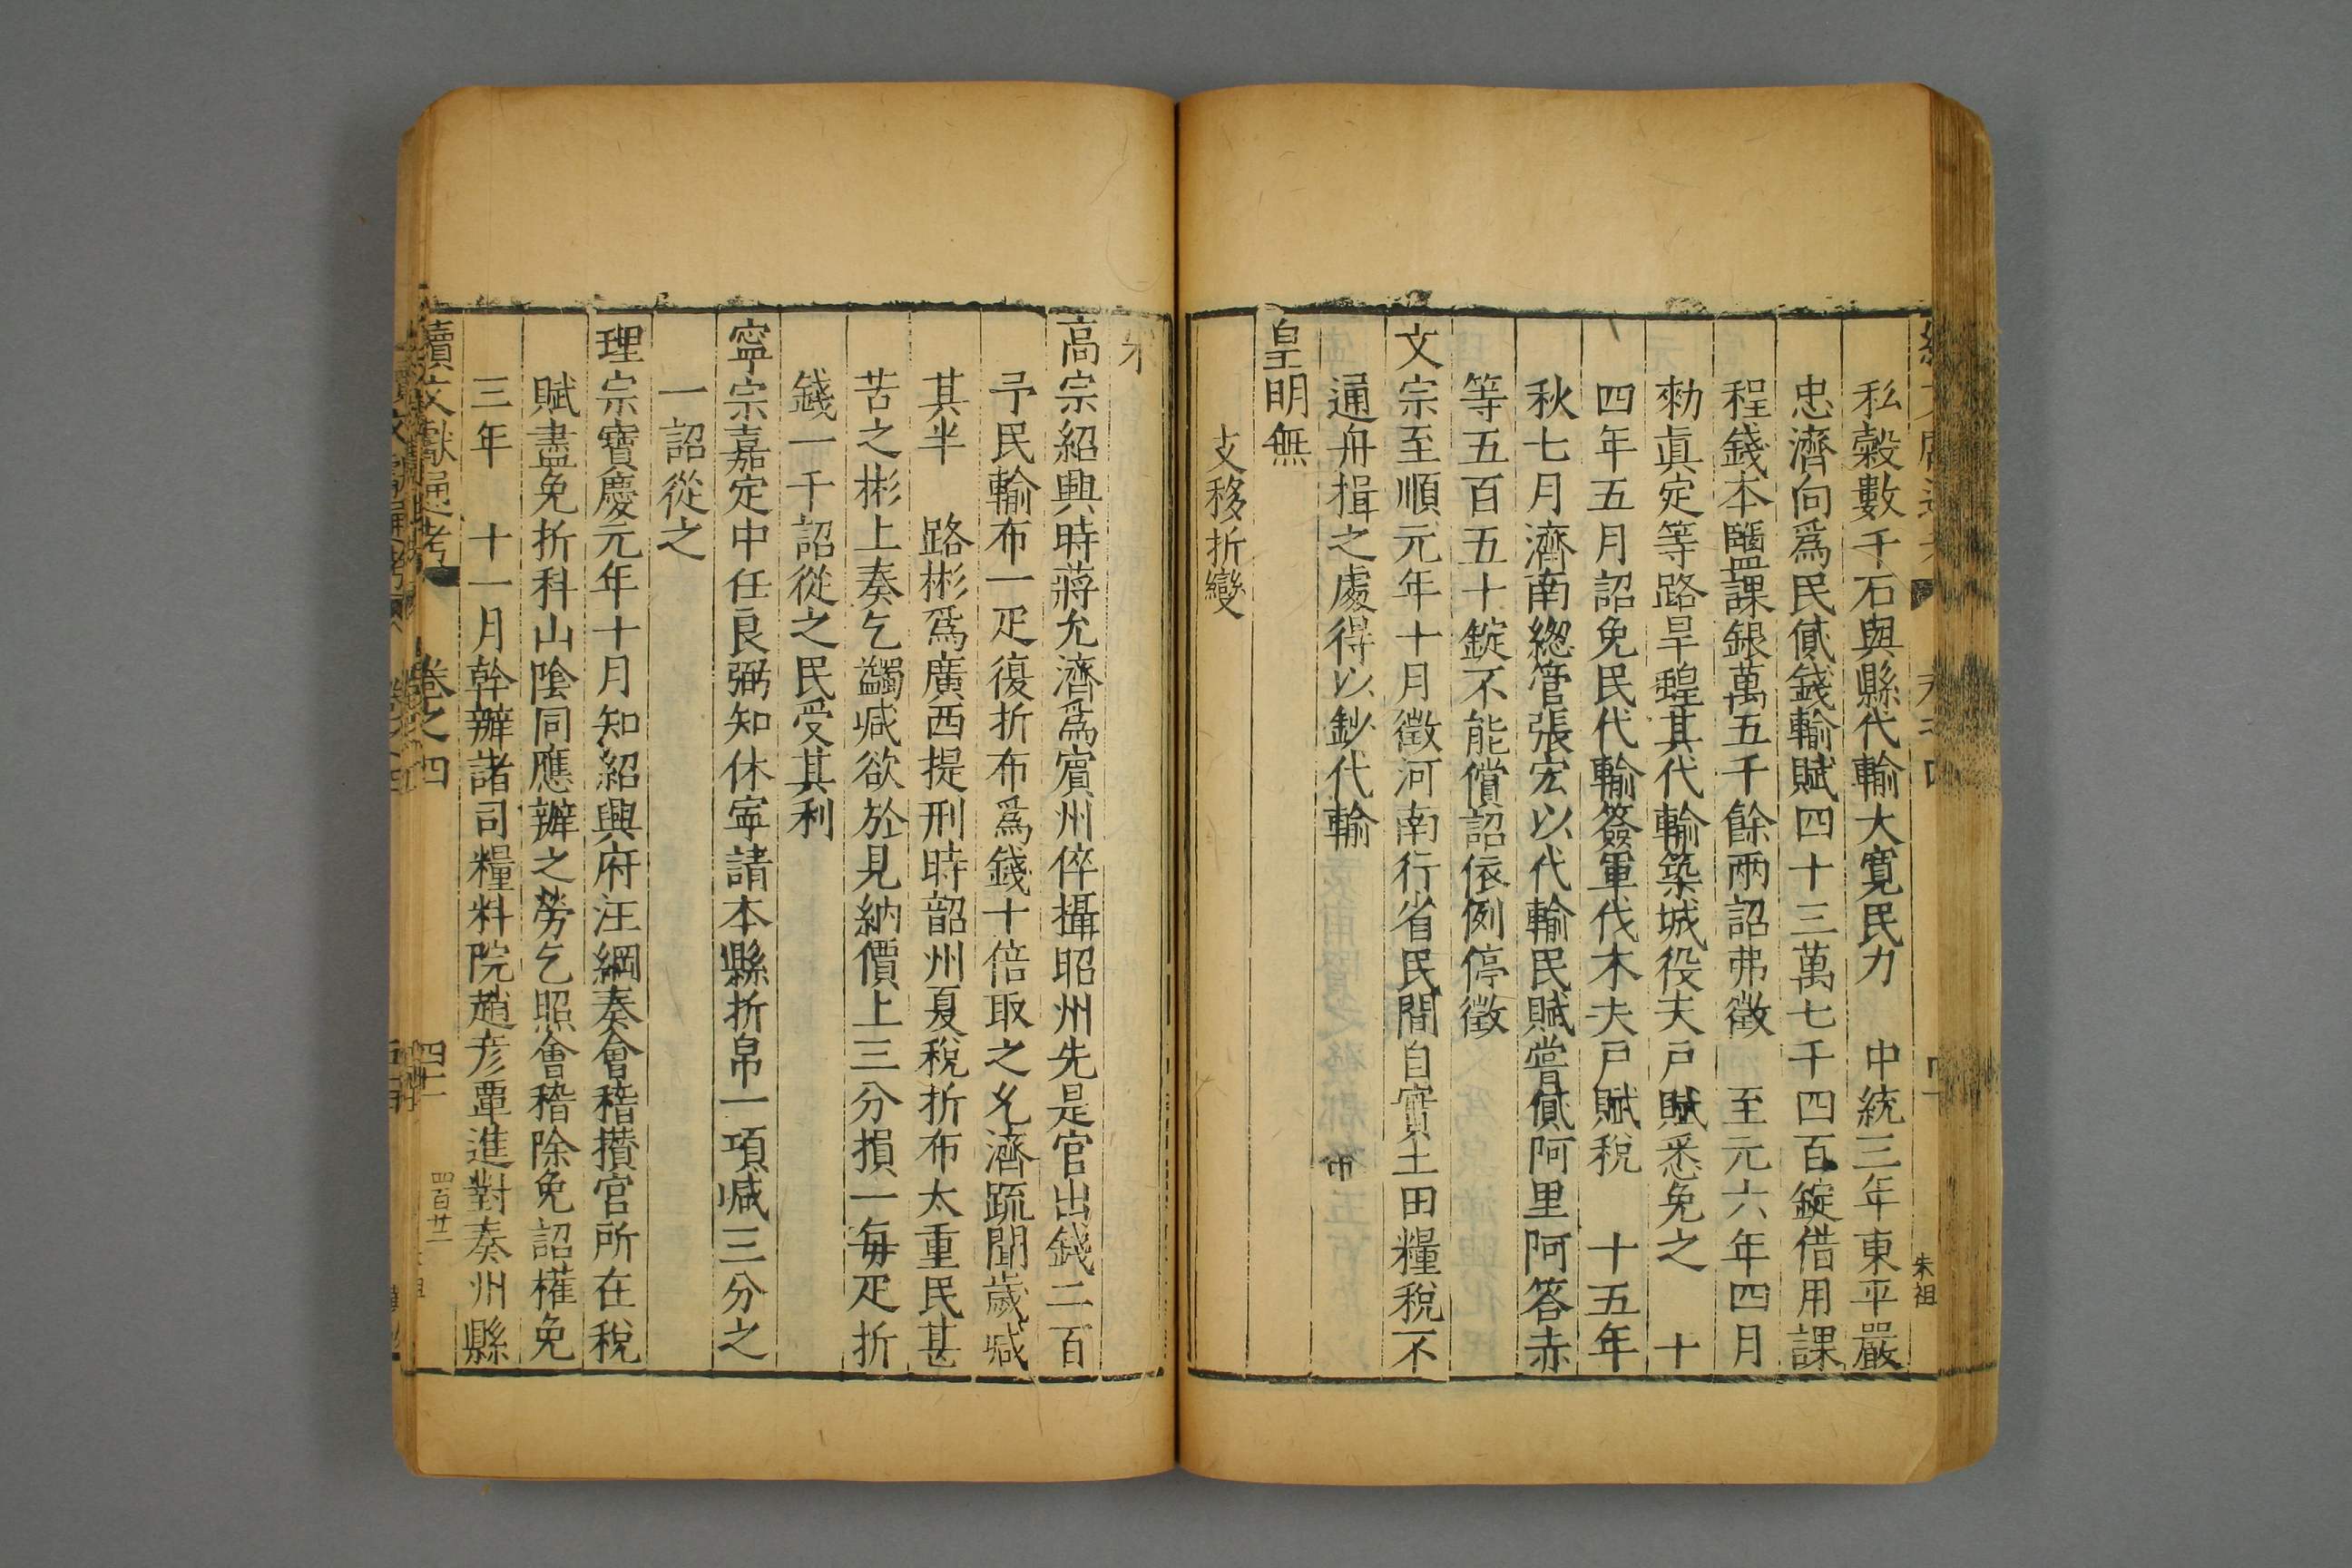 私榖數千石與縣代輸大寛民力　中統三年東平嚴
忠濟向爲民貸錢輸賦四十三萬七千四百錠借用課
程錢本鹽課銀萬五千餘兩詔弗徵　至元六年四月
勑眞定等路旱蝗其代輸築城役夫戸賦悉免之　十
四年五月詔免民代輸簽軍伐木夫戸賦稅　十五年
秋七月濟南緫管張宏以代輸民賦嘗貸阿里阿答赤
等五百五十錠不能償詔依例停徵
文宗至順元年十月徵河南行省民間自實土田糧稅不
通舟楫之處得以鈔代輸
皇明無
支移折變
朱祖
宋
高宗紹興時蔣允濟爲賓州倅攝昭州先是官出錢二百
予民輸布一疋復折布爲錢十倍取之允濟疏聞歲減
其半　路彬爲廣西提刑時韶州夏稅折布太重民甚
苦之彬上奏乞蠲減欲於見納價上三分損一每疋折
錢一千詔從之民受其利
寧宗嘉定中任良弼知休寧請本縣折帛一項減三分之
一詔從之
理宗寳慶元年十月知紹興府汪綱奏會稽攅官所在稅
賦盡免折科山陰同應辦之勞乞照會稽除免詔權免
三年　十一月幹辦諸司糧料院趙彥覃進對奏州縣
續文獻通考　卷之四　四十一
四百廿二